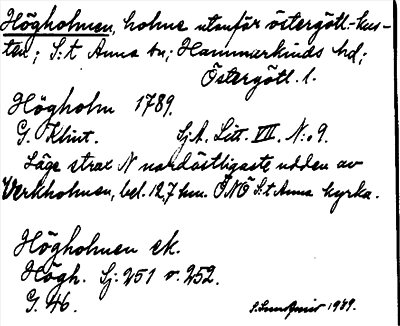 Högholmen, holme utanför östergötl.-kus-
ten; S:t Anna sn; Hammarkinds hd;
Östergötl. l.
Högholm 1789.
G. Klint. Sj.A. Litt. VII. N:o 9.
Läge strax N nordöstligaste udden av
Verkholmen, bel. 12,7 km. ONO S:t Anna kyrka.
Högholmen ek.
Högh. Sj: 251 o. 252.
G. 46.
1989.